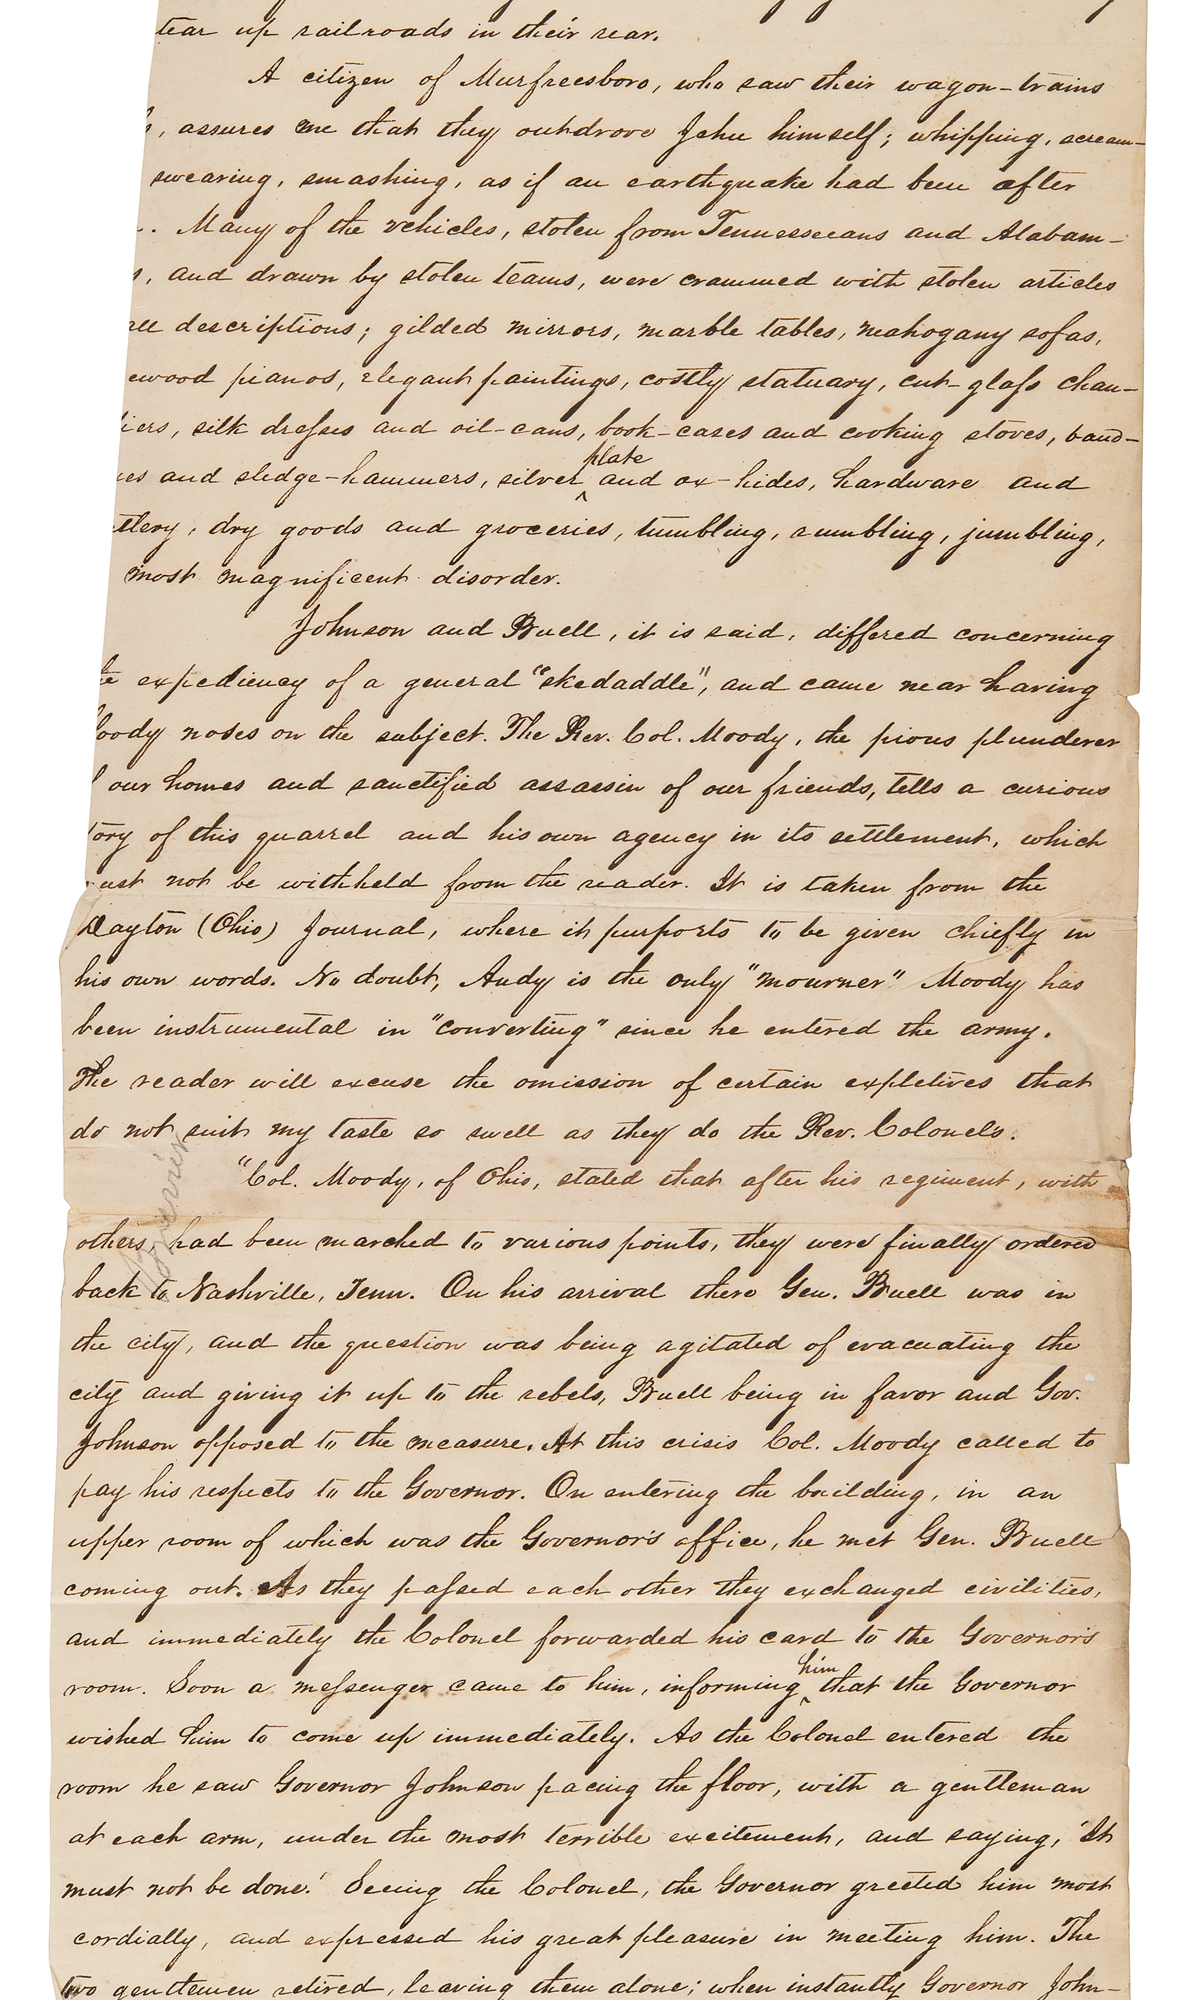 tear up railroads in their rear.
A citizen of Murfreesboro, who saw their wagon-trains
s, assures me that they outdrove Jehu himself; whipping, scream-
swearing, smashing, as if an earthquake had been after
. Many of the vehicles, stolen from Tennesseeans and Alabam-
s, and drawn by stolen teams, were crammed with stolen articles
all descriptions; gilded mirrors, marble tables, mahogany sofas,
ewood pianos, elegant paintings, costly statuary, cut-glass chan-
liers, silk dresses and oil-cans, book-cases and cooking stoves, band-
plate
xes and sledge-hammers, silver ^ and ox-hides, hardware and
utlery, dry goods and groceries, tumbling, rumbling, jumbling,
most magnificent disorder.
Johnson and Buell, it is said, differed concerning
the expediency of a general "skedaddle", and came near having
bloody noses on the subject. The Rev. Col. Moody, the pious plunderer
f our homes and sanctified assassin of our friends, tells a curious
tory of this quarrel and his own agency in its settlement, which
ust not be withheld from the reader. It is taken from the
Dayton (Ohio) Journal, where it purports to be given chiefly in
his own words. No doubt, Andy is the only "mourner" Moody has
been instrumental in "converting" since he entered the army.
The reader will excuse the omission of certain expletives that
do not suit my taste so swell as they do the Rev. Colonels.
"Col. Moody, of Ohio, stated that after his regiment, with
others, had been marched to various points, they were finally ordered
back to Nashville, Tenn. On his arrival there Gen. Buell was in
the city, and the question was being agitated of evacuating the
city and giving it up to the rebels, Buell being in favor and Gov.
Johnson opposed to the measure. At this crisis Col. Moody called to
pay his respects to the Governor. On entering the building, in an
upper room of which was the Governor's office, he met Gen. Buell
coming out. As they passed each other they exchanged civilities,
and immediately the Colonel forwarded his card to the Governor's
him
room. Soon a messenger came to him, informing ^ that the Governor
wished him to come up immediately. As the Colonel entered the
room he saw Governor Johnson pacing the floor, with a gentleman
at each arm, under the most terrible excitement, and saying, 'It
must not be done.' Seeing the Colonel, the Governor greeted him most
cordially, and expressed his great pleasure in meeting him. The
two gentlemen retired, leaving them alone; when instantly Governor John-